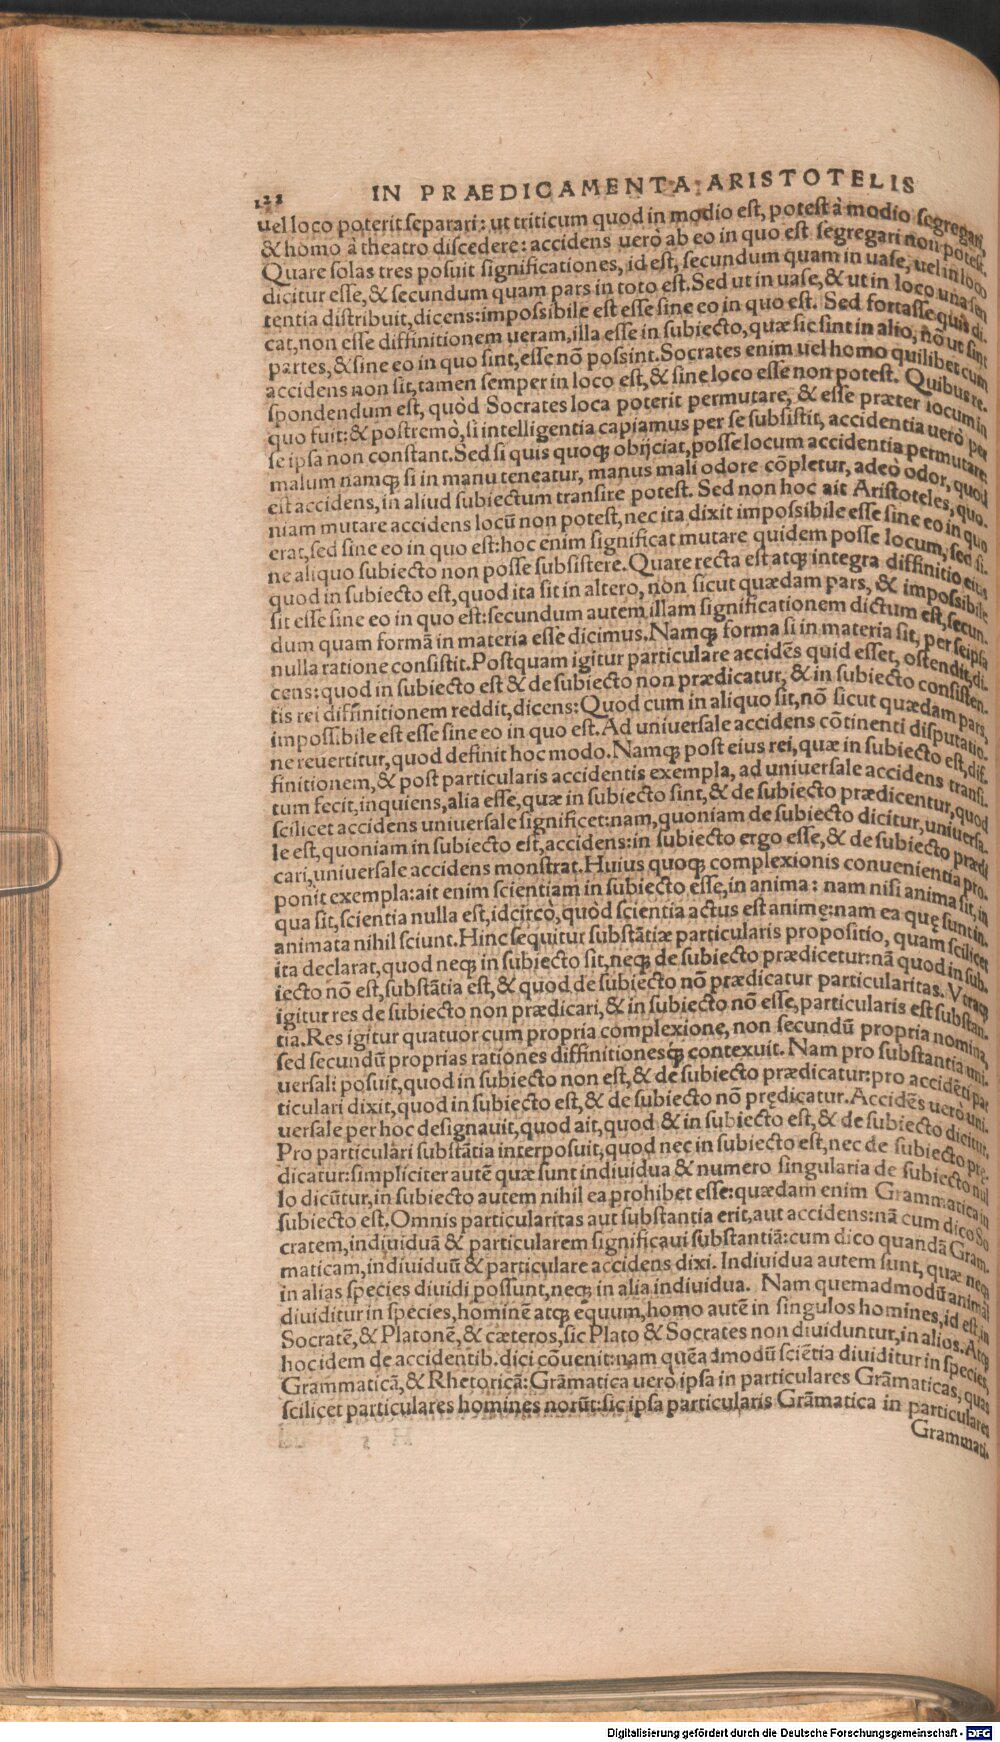 122 IN PRAEDICAMENTA ARISTOTELIS
uel loco poterit separari: ut triticum quod in modio est, potest à modio segregari,
& homo à theatro discedere: accidens uerò ab eo in quo est segregari non potest.
Quare solas tres posuit significationes, id est, secundum quam in uase, uel in loco
dicitur esse, & secundum quam pars in toto est. Sed ut in uase, & ut in loco una sen
tentia distribuit, dicens: impossibile est esse sine eo in quo est. Sed fortasse quis di-
cat, non esse diffinitionem ueram, illa esse in subiecto, quæ sic sint in alio, nõ ut sint
partes, & sine eo in quo sint, esse nõ possint. Socrates enim uel homo quilibet cum
accidens non sit, tamen semper in loco est, & sine loco esse non potest. Quibus re-
spondendum est, quòd Socrates loca poterit permutare, & esse præter locum in
quo fuit: & postremò, si intelligentia capiamus per se subsistit, accidentia uerò per
se ipsa non constant. Sed si quis quoq; obijciat, posse locum accidentia permutare:
malum namq; si in manu teneatur, manus mali odore cõpletur, adeò odor, quod
est accidens, in aliud subiectum transire potest. Sed non hoc ait Aristoteles, quo-
niam mutare accidens locũ non potest, nec ita dixit impossibile esse sine eo in quo
erat, sed sine eo in quo est: hoc enim significat mutare quidem posse locum, sed si-
ne aliquo subiecto non posse subsistere. Quare recta est atq; integra diffinitio eius
quod in subiecto est, quod ita sit in altero, non sicut quædam pars, & impossibile
sit esse sine eo in quo est: secundum autem illam significationem dictum est, secun-
dum quam formã in materia esse dicimus. Namq; forma si in materia sit, per seipsa
nulla ratione consistit. Postquam igitur particulare accidẽs quid esset, ostendit, di-
cens: quod in subiecto est & de subiecto non prædicatur, & in subiecto consisten-
tis rei diffinitionem reddit, dicens: Quod cum in aliquo sit, nõ sicut quædam pars,
impossibile est esse sine eo in quo est. Ad uniuersale accidens cõtinenti disputatio-
ne reuertitur, quod definit hoc modo. Namq; post eius rei, quæ in subiecto est, dif-
finitionem, & post particularis accidentis exempla, ad uniuersale accidens transi-
tum fecit, inquiens, alia esse, quæ in subiecto sint, & de subiecto prædicentur, quod
scilicet accidens uniuersale significet: nam, quoniam de subiecto dicitur, uniuersa-
le est, quoniam in subiecto est, accidens: in subiecto ergo esse, & de subiecto prædi
cari, uniuersale accidens monstrat. Huius quoq; complexionis conuenientia pro-
ponit exempla: ait enim scientiam in subiecto esse, in anima: nam nisi anima sit, in
qua sit, scientia nulla est, idcircò, quòd scientia actus est animę: nam ea quę sunt in-
animata nihil sciunt. Hinc sequitur substãtiæ particularis propositio, quam scilicet
ita declarat, quod neq; in subiecto sit, neq; de subiecto prædicetur: nã quod in sub-
iecto nõ est, substãtia est, & quod de subiecto nõ prædicatur particularitas. Vtraq;
igitur res de subiecto non prædicari, & in subiecto nõ esse, particularis est substan-
tia. Res igitur quatuor cum propria complexione, non secundũ propria nomina,
sed secundũ proprias rationes diffinitionesq́; contexuit. Nam pro substantia uni-
uersali posuit, quod in subiecto non est, & de subiecto prædicatur: pro accidẽti par
ticulari dixit, quod in subiecto est, & de subiecto nõ prędicatur. Accidẽs uerò uni-
uersale per hoc designauit, quod ait, quod & in subiecto est, & de subiecto dicitur,
Pro particulari substãtia interposuit, quod nec in subiecto est, nec de subiecto prę-
dicatur: simpliciter autẽ quæ sunt indiuidua & numero singularia de subiecto nul
lo dicũtur, in subiecto autem nihil ea prohibet esse: quædam enim Grammatica in
subiecto est. Omnis particularitas aut substantia erit, aut accidens: nã cum dico So
cratem, indiuiduã & particularem significaui substantiã: cum dico quandã Gram-
maticam, indiuiduũ & particulare accidens dixi. Indiuidua autem sunt, quæ neq;
in alias species diuidi possunt, neq; in alia indiuidua. Nam quemadmodũ animal
diuiditur in species, hominẽ atq; equum, homo autẽ in singulos homines, id est, in
Socratẽ, & Platonẽ, & cæteros, sic Plato & Socrates non diuiduntur, in alios. Atq;
hoc idem de accidentib. dici cõuenit: nam quẽadmodũ sciẽtia diuiditur in species,
Grammaticã, & Rhetoricã: Grãmatica uerò ipsa in particulares Grãmaticas, quas
scilicet particulares homines norũt: sic ipsa particularis Grãmatica in particulares
Grammati-
Digitalisierung gefördert durch die Deutsche Forschungsgemeinschaft - DFG